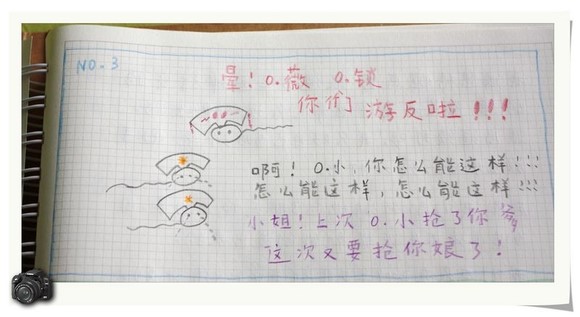 NO.3
晕！O.薇 O.锁
你们游反啦!!!
啊！O.小,你怎么能这样!!!
怎么能这样，怎么能这样!!!
小姐！上次 O.小抢了你爹
这次又要抢你娘了！